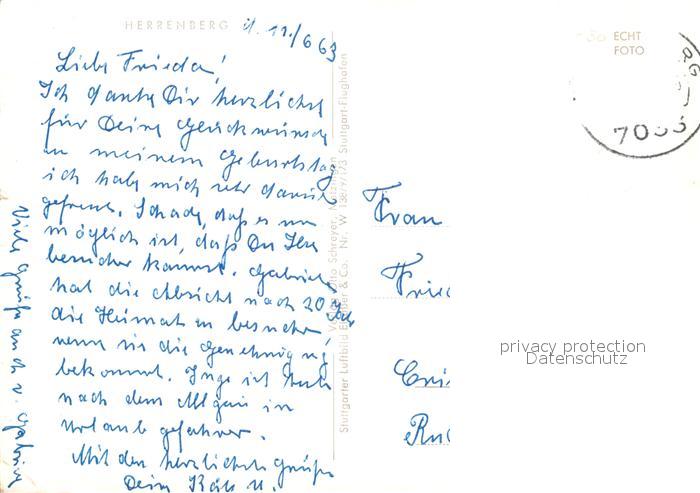 HERRENBERG d. 11/6 63
Liebe Frieda!
Ich danke Dir herzlichst
für Deine Glückwünsche
zu meinem Geburtstag
ich habe mich sehr darüber
gefreut. Schade, daß es un
möglich ist, daß Du Ilse
besuchen kannst. Gabriele
hat die Absicht nach 20 Jah
die Heimat zu besuchen,
wenn sie die Genehmigung
bekommt. Inge ist heute
nach dem Allgäu in
Urlaub gefahren.
Mit den herzlichsten Grüßen
Deine
Viele Grüße auch v. Gabriele
Stuttgarter Luftbild Elsäßer & Co. Nr. W Stuttgart-Flughafen
ECHT
FOTO
7033
Frau
Frie
privacy protection
Datenschutz